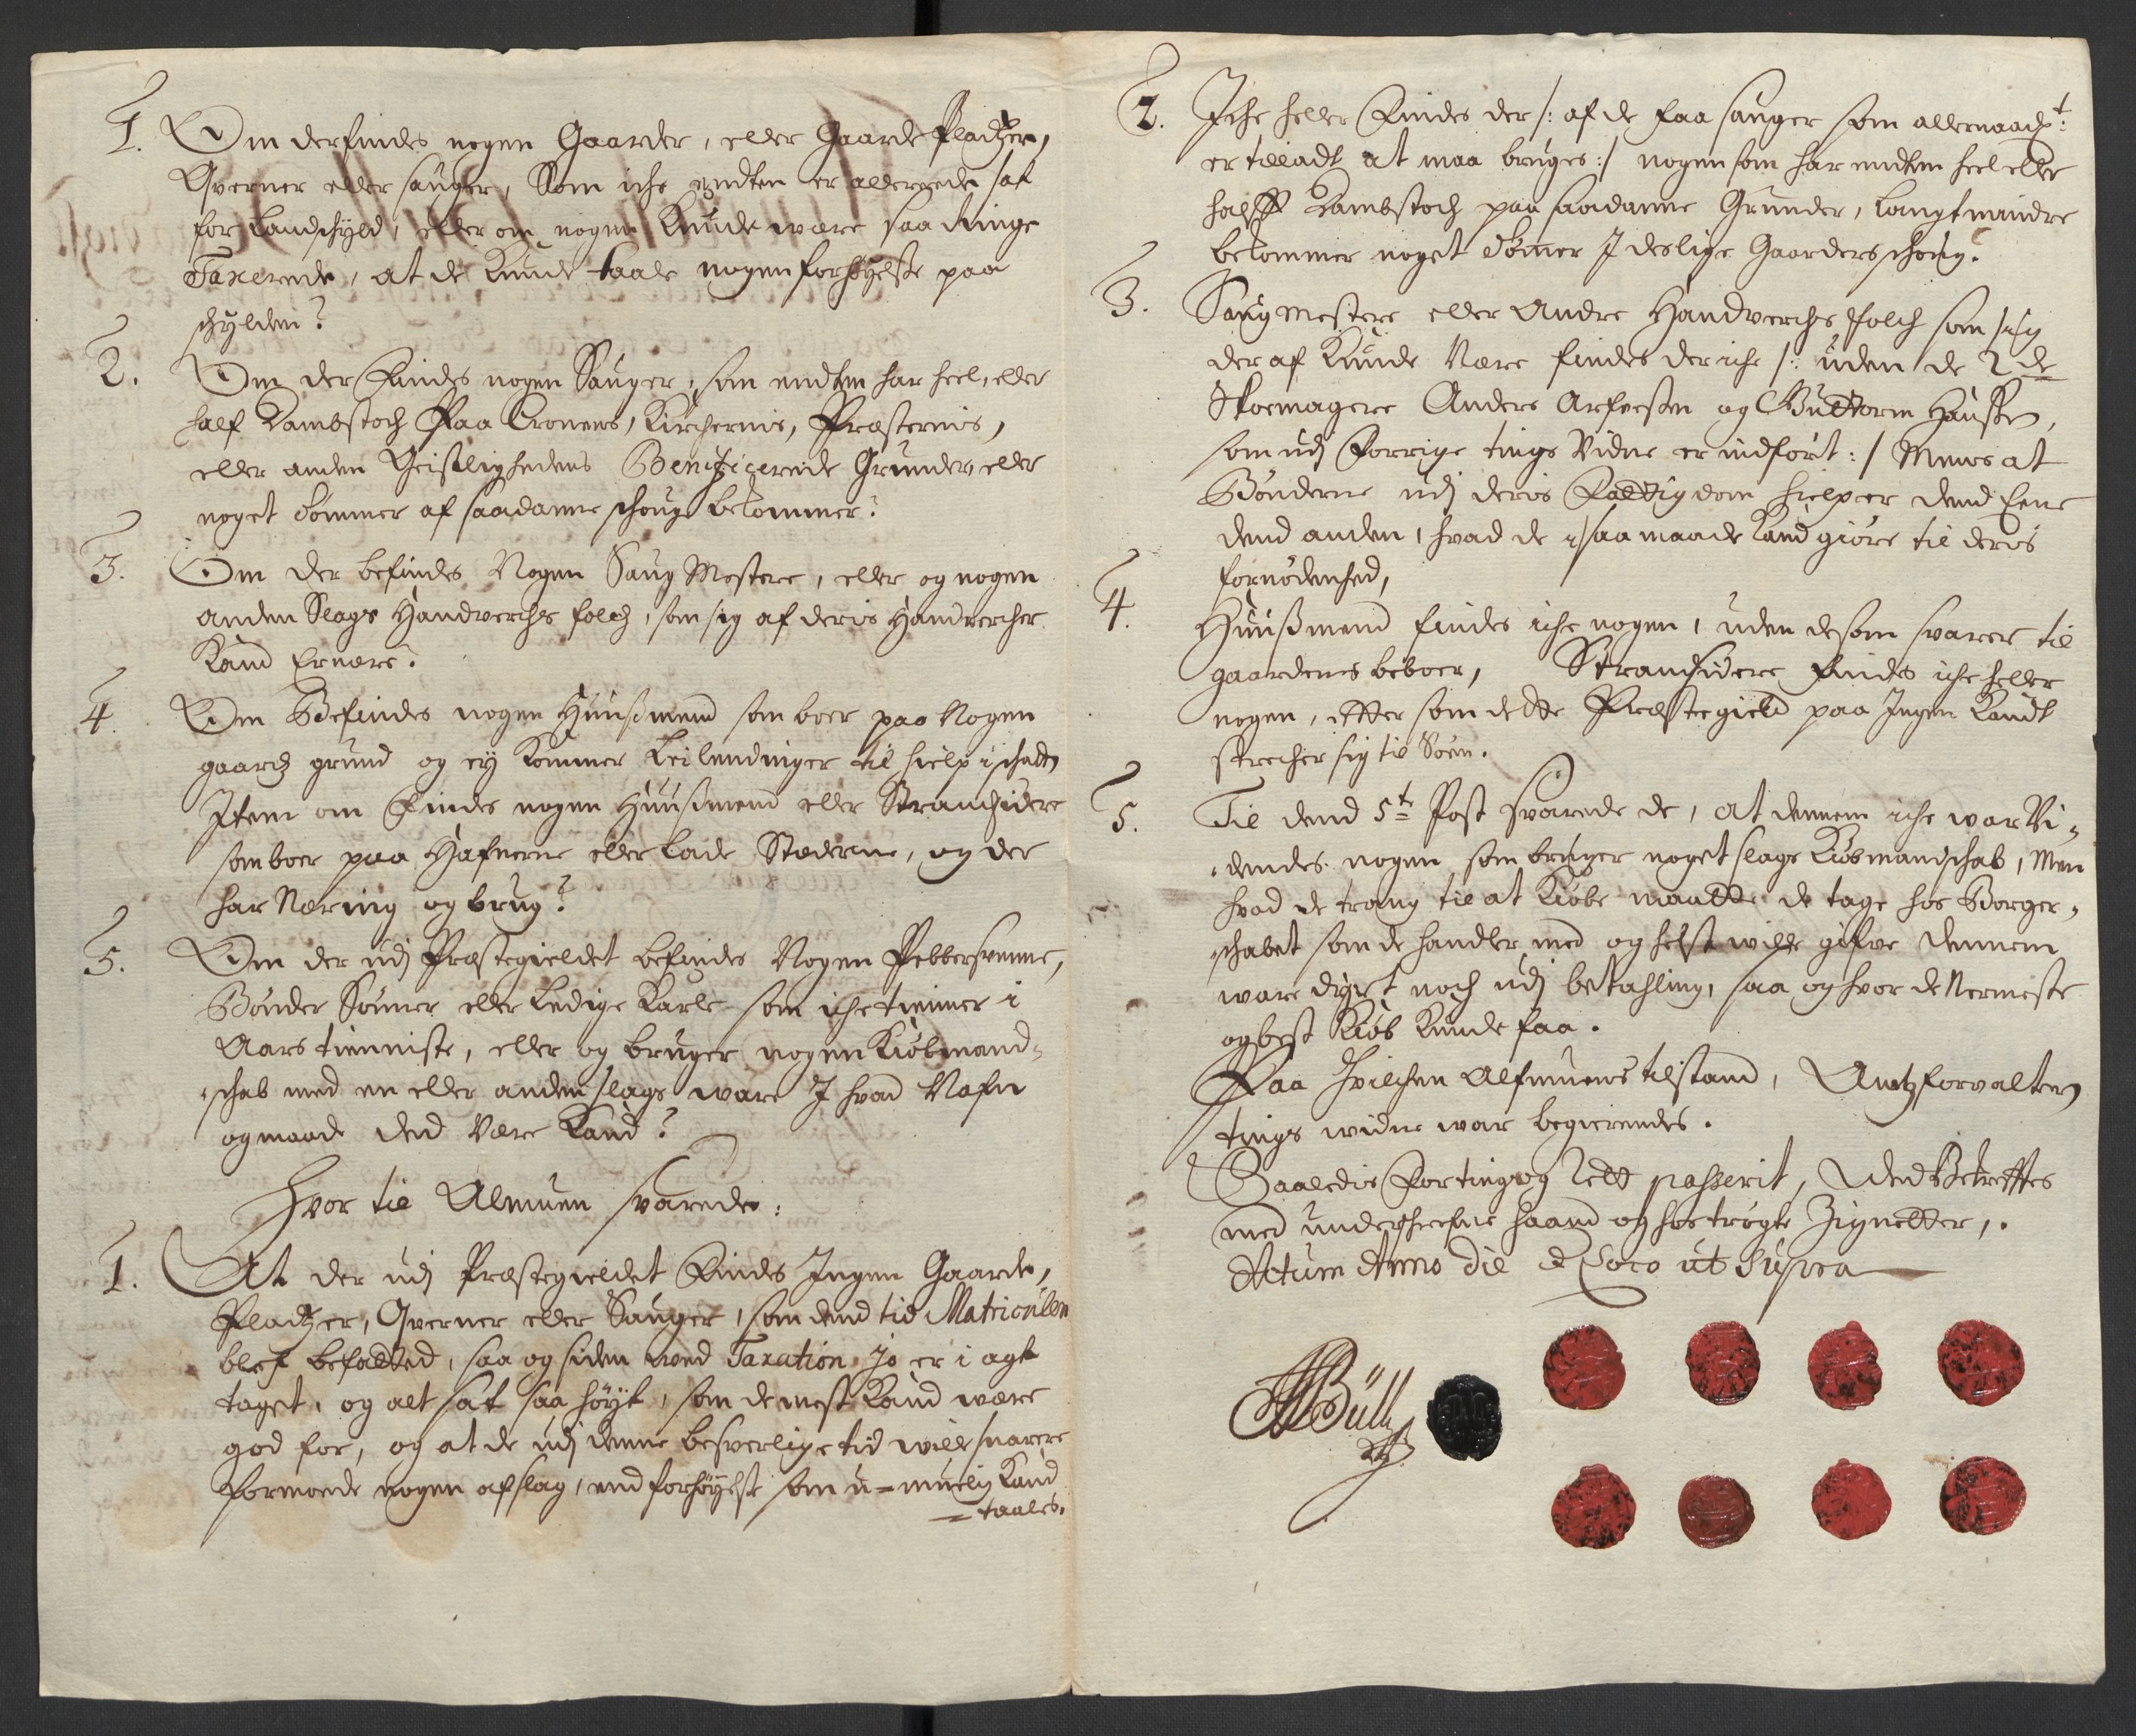 1. Om der findes nogen Gaarder, eller Gaarde Pladtzer,
Qverner eller sauger, Som iche endten er allereede sat
for Landschyld, eller om nogen kunde være saa ringe
Taxerede, at de kunde taale nogen forhøyelse paa
schylden?
2. Om der Findes nogen Sauger, som endten har heel, eller
half Kambstoch Paa Cronens, Kirchernis, Præsternis,
eller anden Geistlighedens Beneficerede Grunder, eller
noget tømmer af saadanne schoug bekommer?
3. Om der befindes Nogen Saug Mestere, eller og nogen
anden Slags Handverchs folch, som sig af deris Handvercher
Kand Ernære?
4. Om Befindes nogen Huusmend som boer paa Nogen
gaardz grund og ey kommer Leilendinger til hielp i schatten
Item om Findes nogen Huusmend eller Strandsidere
som boer paa Hafnerne eller Lade Stæderne, og der
har Næring og brug?
5. Om der udj Præstegieldet befindes Nogen Pebbersvenne,
Bønder Sønner eller Ledige Karle som iche tienner i
Aars tienniste, eller og bruger nogen Kiøbmand-
schab med en eller anden slags ware I hvad Nafn
og maade ded Være Kand?
Hvor til Almuen svarede:
1. At der udj Præstegieldet Findes Ingen Gaarde,
Pladtzer, Qverner eller Sauger, som dend tid Matriculen
blef befatted, saa og siden ved Taxation jo er i agt
taget, og alt sat saa høyt, som de mest Kand være
god for, og at de udj denne besverlige tid wille snarere
formoede nogen afslag, end forhøyelse som u-muelig Kand
= taales.
2. Iche heller Findes der /: af de faa sauger som allernaadst:
er tilladt at maa bruges :/ nogen som har endten heel eller
halff Kambstoch paa saadanne Grunder, langt mindre
bekommer noget tømer I deslige Gaarders schoug.
3. Saug mestere eller Andre Handverchs folch som sig
der af Kunde Nære findes der iche /: uden de 2de
Skoemagere Anders Arfvesen og Guttorm Hansen,
som udj Forrige tings Vidne er indført :/ Mens at
Bønderne udj deris Fattigdom hielper dend Eene
dend anden, hvad de i saa maade Kand giøre til deris
fornødenhed,
4. Huusmend findes iche nogen, uden de som svarer til
gaardenes beboer, Strandsidere Findes iche heller
nogen, etter som dette Præstegield paa Ingen Kandt
strecher sig til Søen.
5. Til dend 5te Post svarede de, At dennem iche war Vi-
dendes nogen som bruger noget slags Kiøbmandschab, Men
hvad de trang til at Kiøbe maatte de tage hos Borger-
schabet som de handler med og helst wille gifve dennem
ware dyrt noch udj betahling, saa og hvor de Nermeste
og best Kiøb kunde faa.
Paa hvilchen Alfmuens tilstand, Amtzforvalteren
tings widne war begierendes.
Saaledis For ting og Rett passerit, Ded Bekreffter
med underschrefne haand og hostrøgte Zignetter,.
Actum Anno Die & Loco ut Supra